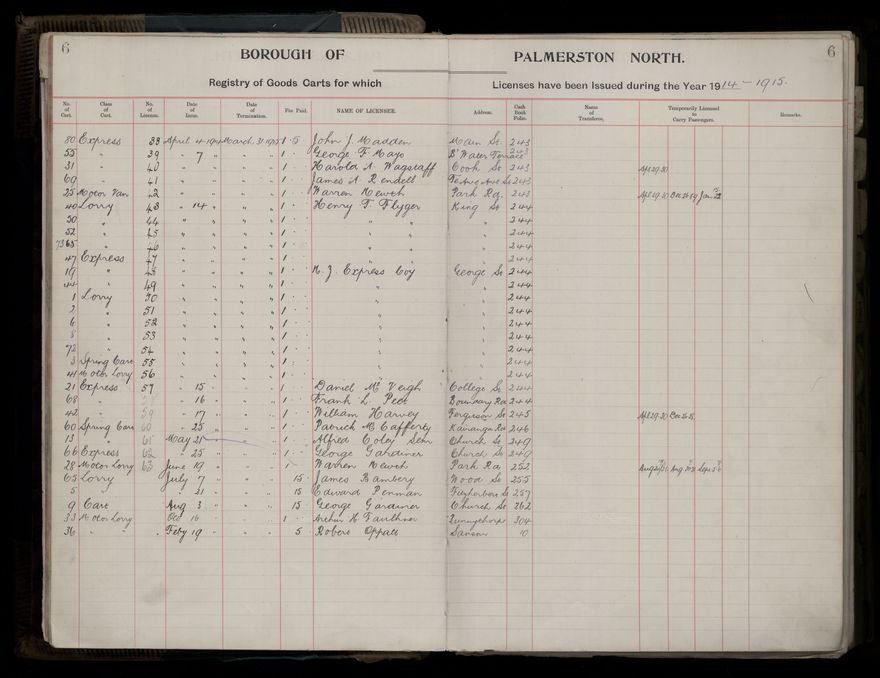 6
BOROUGH OF PALMERSTON NORTH.
6
Registry of Goods Carts for which Licenses have been Issued during the Year 1914-1915.
No. of Cart. Class of Cart. No. of License. Date of Issue. Date of Termination. Fee Paid. NAME OF LICENSEE. Address. Cash Book Folio. Name of Transferee. Temporarily Licensed to Carry Passengers. Remarks.
80 Express 38 April 4 1914 March 31 1915 1 · 5 John J. Madden Main St 243
55 " 39 " 7 " " " " 1 · George F Mayo B' Water Terrace 243
31 " 40 " " " " " " 1 · Harold A. Wagstaff Cook St 243 Apl 29.30
69 " 41 " " " " " " 1 · James A. Rendell 243
25 Motor Van 42 " " " " " " 1 · Warren Newth Park Rd. 243 Apl 29.30
40 Lorry 43 " 14 " " " " 1 · Henry F. Flyger King St 244
30 " 44 " " " " " " 1 · " " 244
52 " 45 " " " " " " 1 · " " 244
7365 " 46 " " " " " " 1 · " " 244
47 Express 47 " " " " " " 1 · " " 244
19 " 48 " " " " " " 1 · N. Z. Express Coy George St 244
44 " 49 " " " " " " 1 · " " 244
1 Lorry 50 " " " " " " 1 · " " 244
2 " 51 " " " " " " 1 · " " 244
6 " 52 " " " " " " 1 · " " 244
8 " 53 " " " " " " 1 · " " 244
72 " 54 " " " " " " 1 · " " 244
3 Spring Cart 55 " " " " " " 1 · " " 244
41 Motor Lorry 56 " " " " " " 1 · " " 244
21 Express 57 " 15 " " " " 1 · Daniel Mc Veigh College St 244
68 " " 16 " " " 1 · Frank L. Peet Boundary Rd 244
42 " 59 " 17 " " " 1 · William Harvey Ferguson St 245 Apl 29.30
60 Spring Cart 60 " 25 " " " 1 · Patrick Mc Cafferty Kairanga Rd 246
13 " 61 May 21 " 1 · Alfred Coley Senr Church St 249
66 Express 62 " 25 " " " 1 · George Gardiner Church St 249
28 Motor Lorry 63 June 19 " " " 1 · Warren Newth Park Rd 252
65 Lorry July 7 " " " 15 · James Bambery Wood St 255
5 " " 31 " " " 15 Edward Penman Fitzherbert St 257
9 Cart Aug 3 " " " 15 George Gardiner Church St 262
33 Motor Lorry Oct 16 " " " 1 · Arthur H. Faulkner 304
36 " " " Feby 19 " " " 5 Robert Oppatt Sanson 10